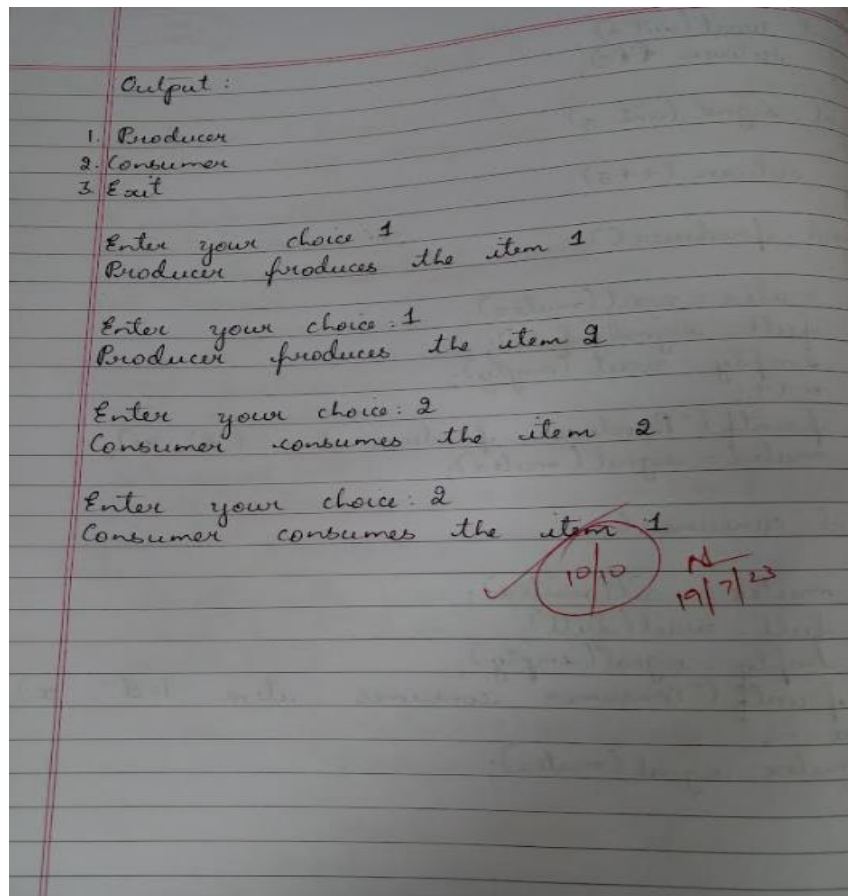 Output :
1. Producer
2. Consumer
3. Exit
Enter your choice : 1
Producer produces the item 1
Enter your choice : 1
Producer produces the item 2
Enter your choice : 2
Consumer consumes the item 2
Enter your choice : 2
Consumer consumes the item 1
10/10
19/7/23